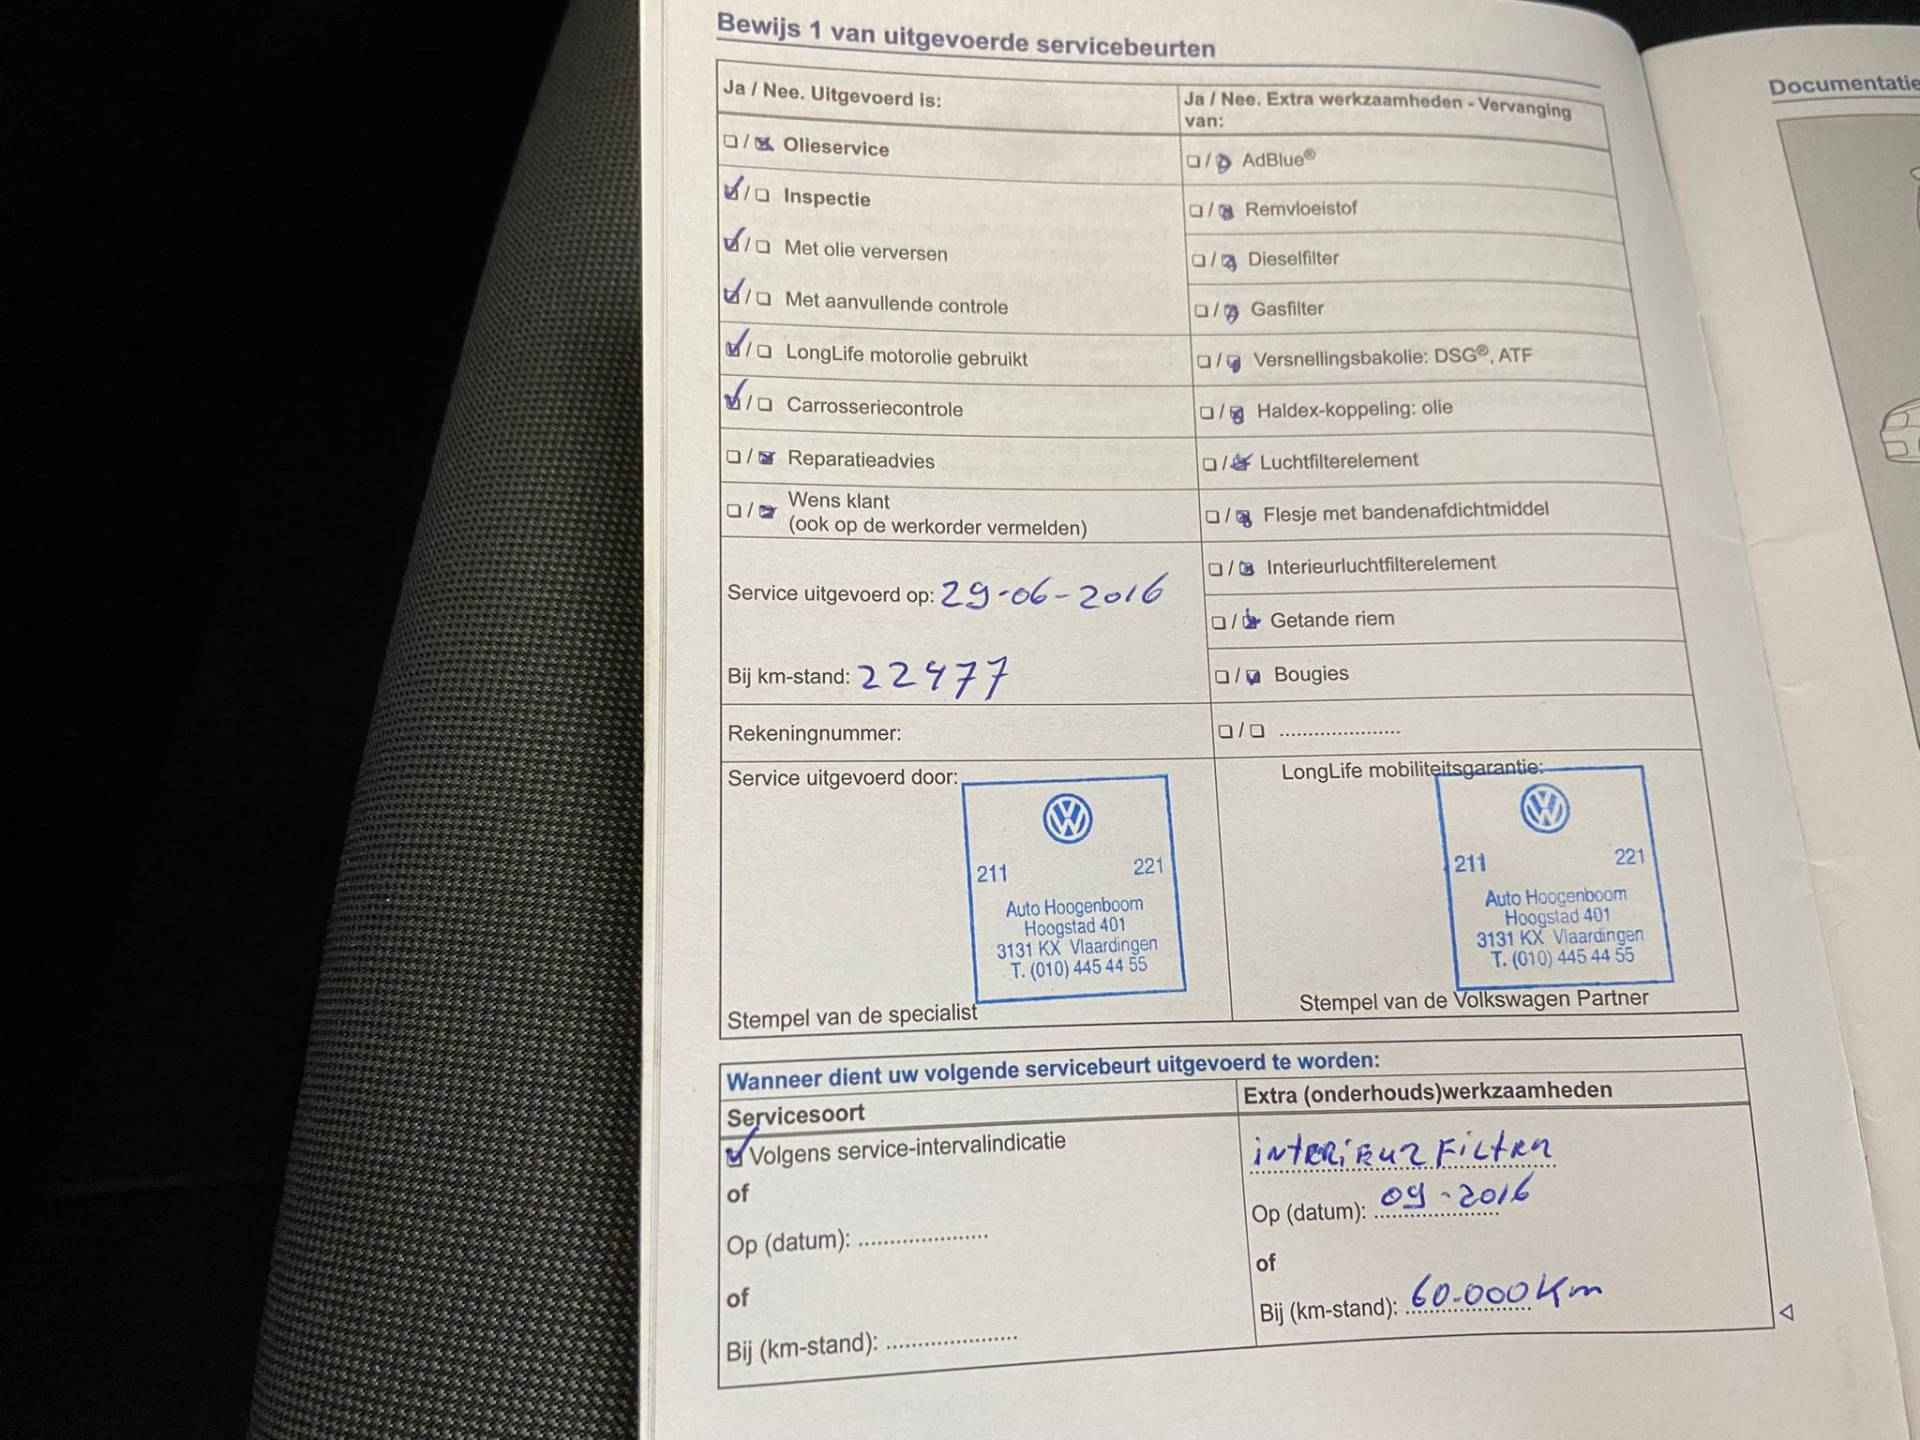 Bewijs 1 van uitgevoerde servicebeurten
Ja / Nee. Uitgevoerd is:
☐ / ☒ Olieservice
☑ / ☐ Inspectie
☑ / ☐ Met olie verversen
☑ / ☐ Met aanvullende controle
☑ / ☐ LongLife motorolie gebruikt
☑ / ☐ Carrosseriecontrole
☐ / ☒ Reparatieadvies
☐ / ☒ Wens klant
(ook op de werkorder vermelden)
Service uitgevoerd op: 29-06-2016
Bij km-stand: 22477
Rekeningnummer:
Service uitgevoerd door:
VW
211 221
Auto Hoogenboom
Hoogstad 401
3131 KX Vlaardingen
T. (010) 445 44 55
Stempel van de specialist
Ja / Nee. Extra werkzaamheden - Vervanging
van:
☐ / ☒ AdBlue®
☐ / ☒ Remvloeistof
☐ / ☒ Dieselfilter
☐ / ☒ Gasfilter
☐ / ☒ Versnellingsbakolie: DSG®, ATF
☐ / ☒ Haldex-koppeling: olie
☐ / ☒ Luchtfilterelement
☐ / ☒ Flesje met bandenafdichtmiddel
☐ / ☒ Interieurluchtfilterelement
☐ / ☒ Getande riem
☐ / ☒ Bougies
☐ / ☐ ......................
LongLife mobiliteitsgarantie:
VW
211 221
Auto Hoogenboom
Hoogstad 401
3131 KX Vlaardingen
T. (010) 445 44 55
Stempel van de Volkswagen Partner
Wanneer dient uw volgende servicebeurt uitgevoerd te worden:
Servicesoort
☑ Volgens service-intervalindicatie
of
Op (datum): ......................
of
Bij (km-stand): ......................
Extra (onderhouds)werkzaamheden
iNtERiEUR FiLtER
Op (datum): 09-2016
of
Bij (km-stand): 60.000 Km
Documentatie